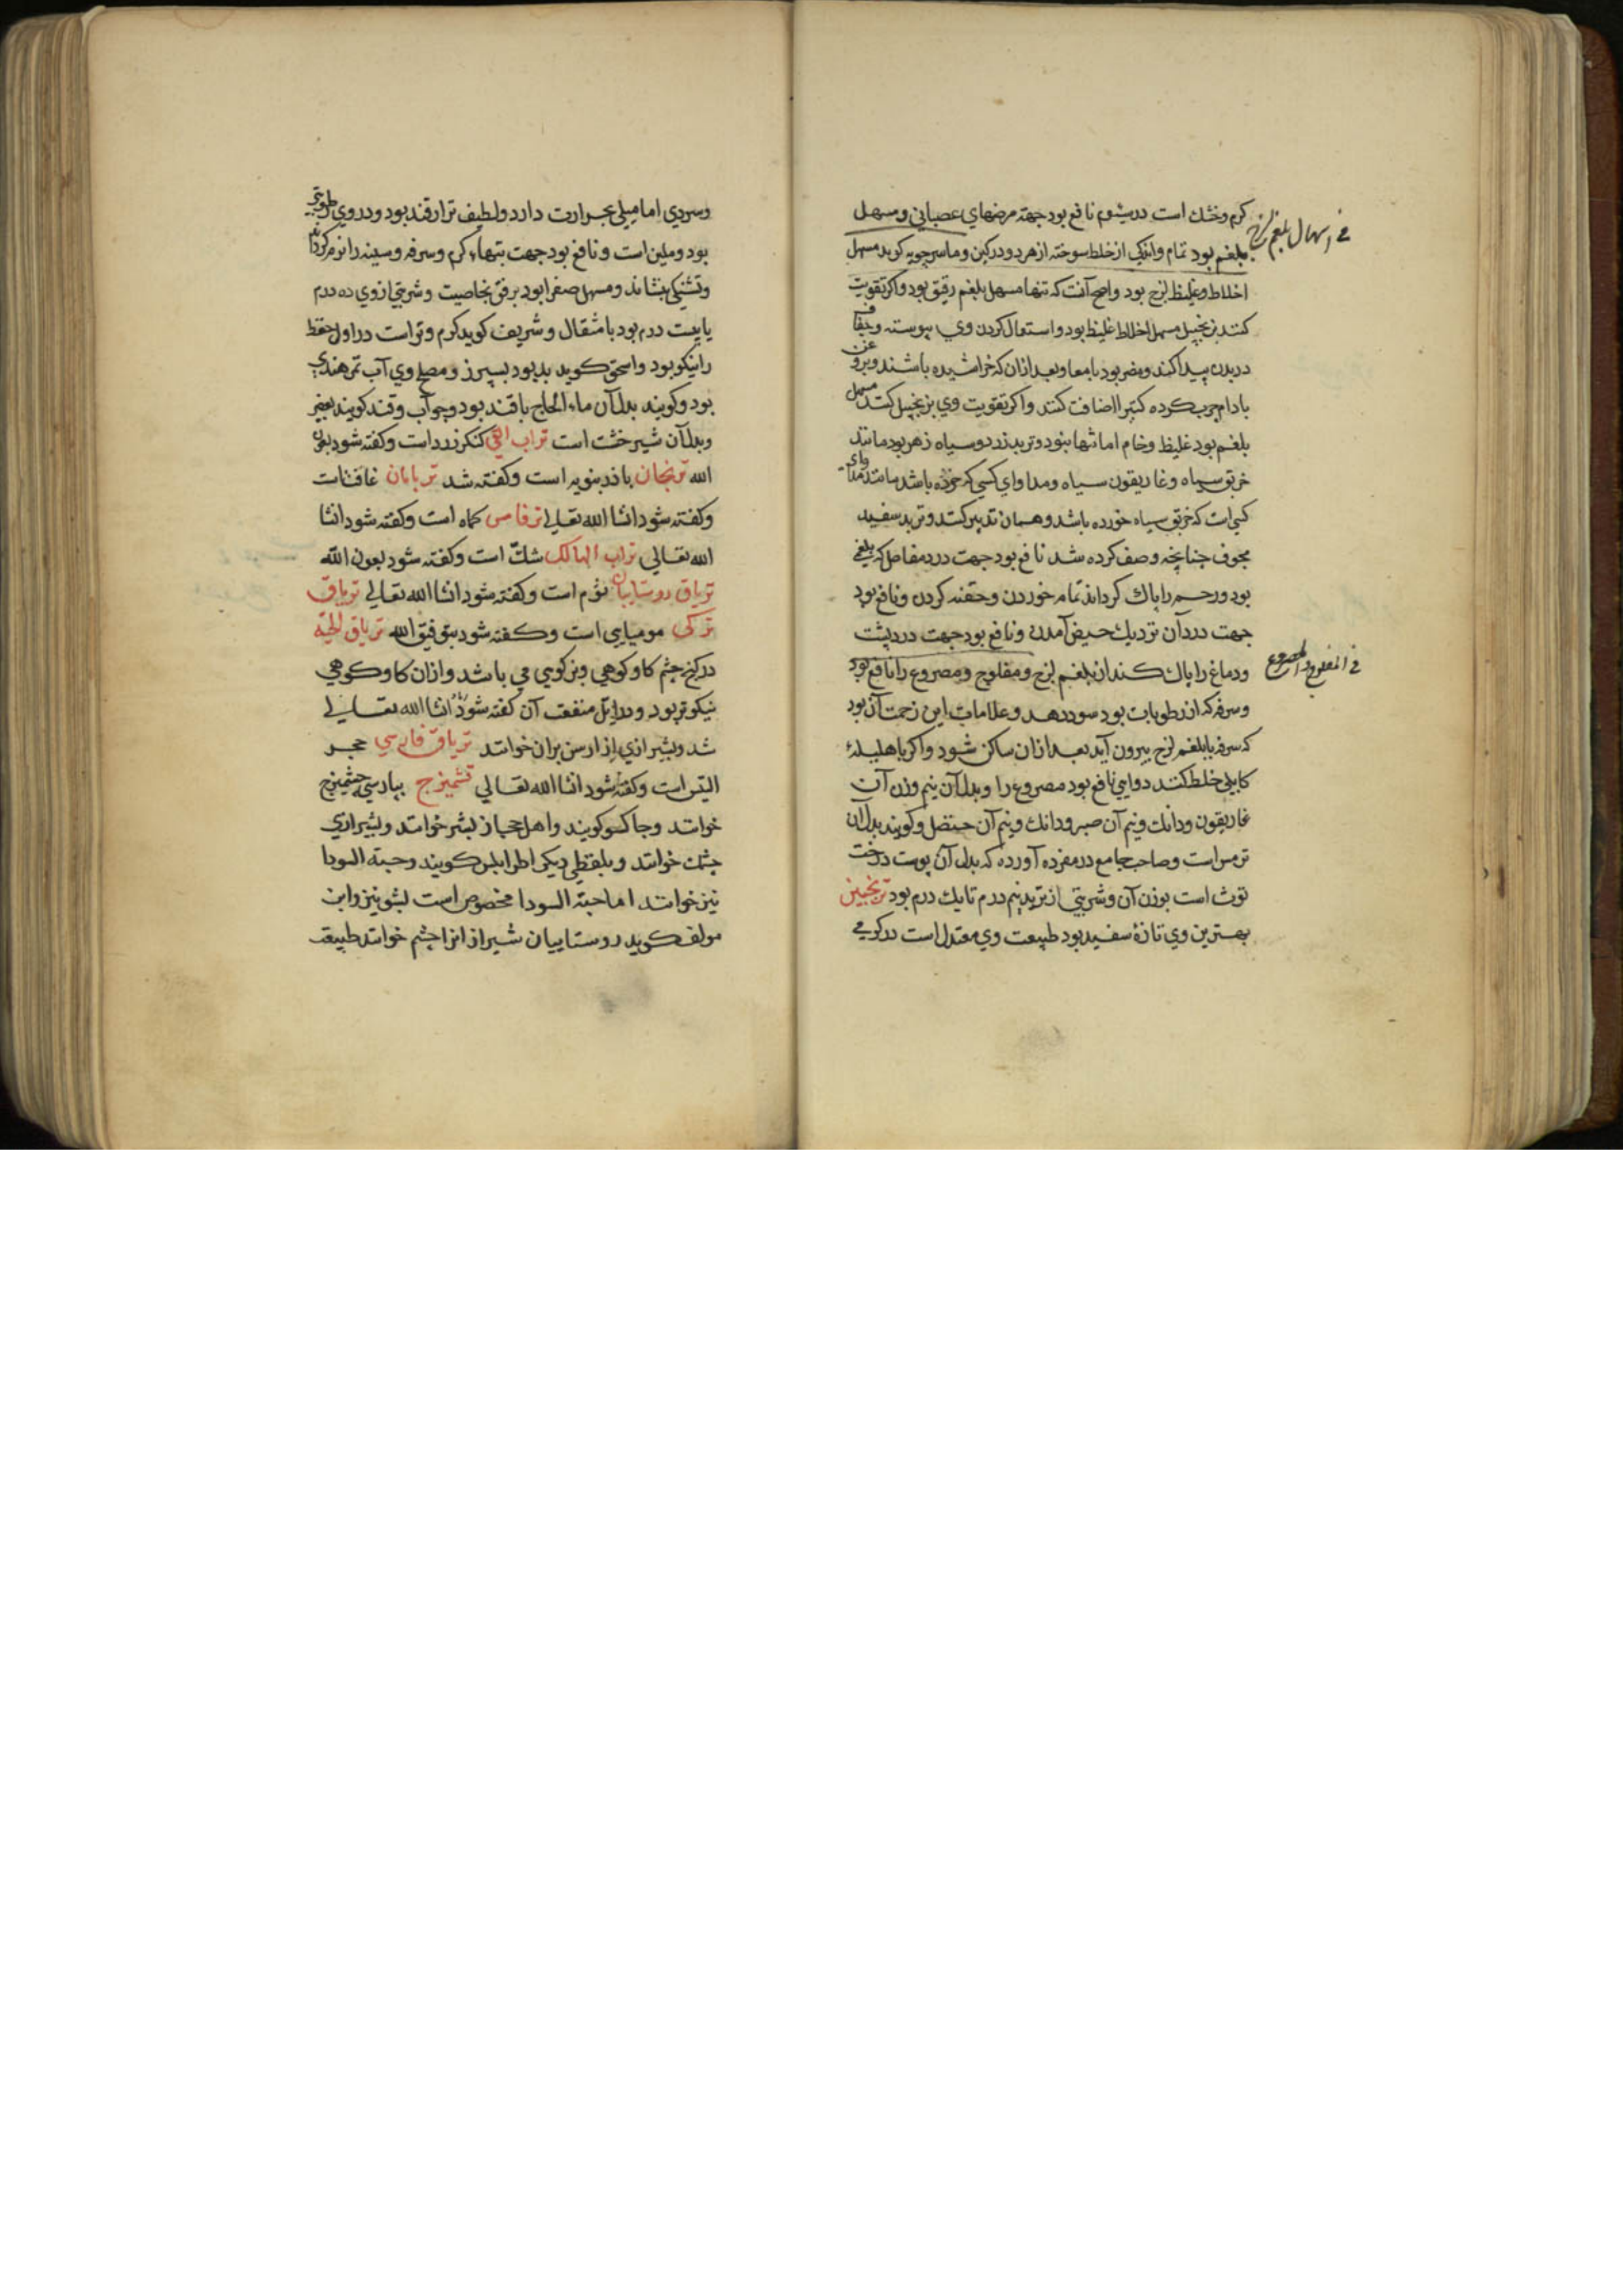 کرم وخشك است در سیوم نافع بود جهته مرضهاي عصباني ومسهل
بلغم بود تمام واندکی از خلط سوخته از هر دو ورکین وماسرجویه کوید مسهل
اخلاط وغلیظ لزج بود واصح آنست که تنها مسهل بلغم رقیق بود واکر تقویت
کنند بزنجبیل مسهل اخلاط غلیظ بود واستعمال کردن وي پیوسته وجفاف
در بدن پیدا کند ومضر بود بامعا وبعد ازان که خراشیده باشند وبروغن
بادام چرب کرده کتیرا اضافت کنند واکر تقویت وي بزنجبیل کنند مسهل
بلغم بود غلیظ وخام اما تنها نبود وتربد زرد وسیاه زهر بود مانند
خربق سیاه وغاریقون سیاه ومداواي کسي که خورده باشد مانند مداواي
کسی است که خربق سیاه خورده باشد وهمان تدبیر کنند وتربد سفید
مجوف چنانچه وصف کرده شد نافع بود جهت درد مفاصل که بلغمي
بود ورحم را پاك کرداند تمام خوردن وحقنه کردن ونافع بود
جهت درد آن نزدیك حیض آمدن ونافع بود جهت درد پشت
ودماغ را پاك کند از بلغم لزج ومفلوج ومصروع را نافع بود
وسرفه که از رطوبات بود سود دهد وعلامات این زحمت آن بود
که سرفه با بلغم لزج بیرون آید بعد ازان ساکن شود واکر با هلیله
کابلي خلط کنند دوایي نافع بود مصروع را وبدل آن نیم وزن آن
غاریقون ودانك ونیم آن صبر ودانك ونیم آن حنضل وکویند بدل آن
ترمس است وصاحب جامع در مفرده آورده که بدل آن پوست درخت
توث است بوزن آن وشربتي از تربد نیم درم تا یك درم بود ترنجبین
بهترین وي تازۀ سفید بود طبیعت وي معتدل است در کرمي
في اسهال بلغم
في المفلوج والمصروع
وسردي اما میلي بحرارت دارد ولطیف تر از قند بود ودر وي رطوبتي
بود وملین است ونافع بود جهت تبهاء کرم وسرفه وسینه را نرم کرداند
وتشنکي بنشاند ومسهل صفرا بود برفق بخاصیت وشربتي از وي ده درم
یا بیست درم بود با مثقال وشریف کوید کرم وتر است در اول حفظ
را نیکو بود واسحق کوید بد بود بسپرز ومصلح وي آب تمر هندي
بود وکویند بدل آن ماء الحاج با قند بود وجو آب وقند کویند بعضي
وبدل آن شیر خشت است تراب القي کنکر زرد است وکفته شود بعون
الله ترنجان باذرنبویه است وکفته شد تربامان غافث است
وکفته شود انشا الله تعالي ترفاس کماه است وکفته شود انشا
الله تعالي تراب الهالك شك است وکفته شود بعون الله
تریاق روستاییان ثوم است وکفته شود انشا الله تعالي تریاق
ترکی مومیایي است وکفته شود بتوفیق الله تریاق الحیه
در کنج چشم کاو کوهي وبز کوهي مي باشد وازان کاو کوهي
نیکوتر بود ودر ایل منفعت آن کفته شود انشا الله تعالي
شد وبشیرازي از ارس بران خوانند تریاق فارسي حجر
التیس است وکفته شود انشا الله تعالي تشمیزج بپارسي چشمیزج
خوانند وچاکسو کویند واهل حجاز بشر خوانند وبشیرازي
چشك خوانند وبلفظي دیکر اطرابلس کویند وحبته السودا
نیز خوانند اما حبته السودا مخصوص است بشونیز واین
مولف کوید روستاییان شیراز انزا چشم خوانند طبیعت